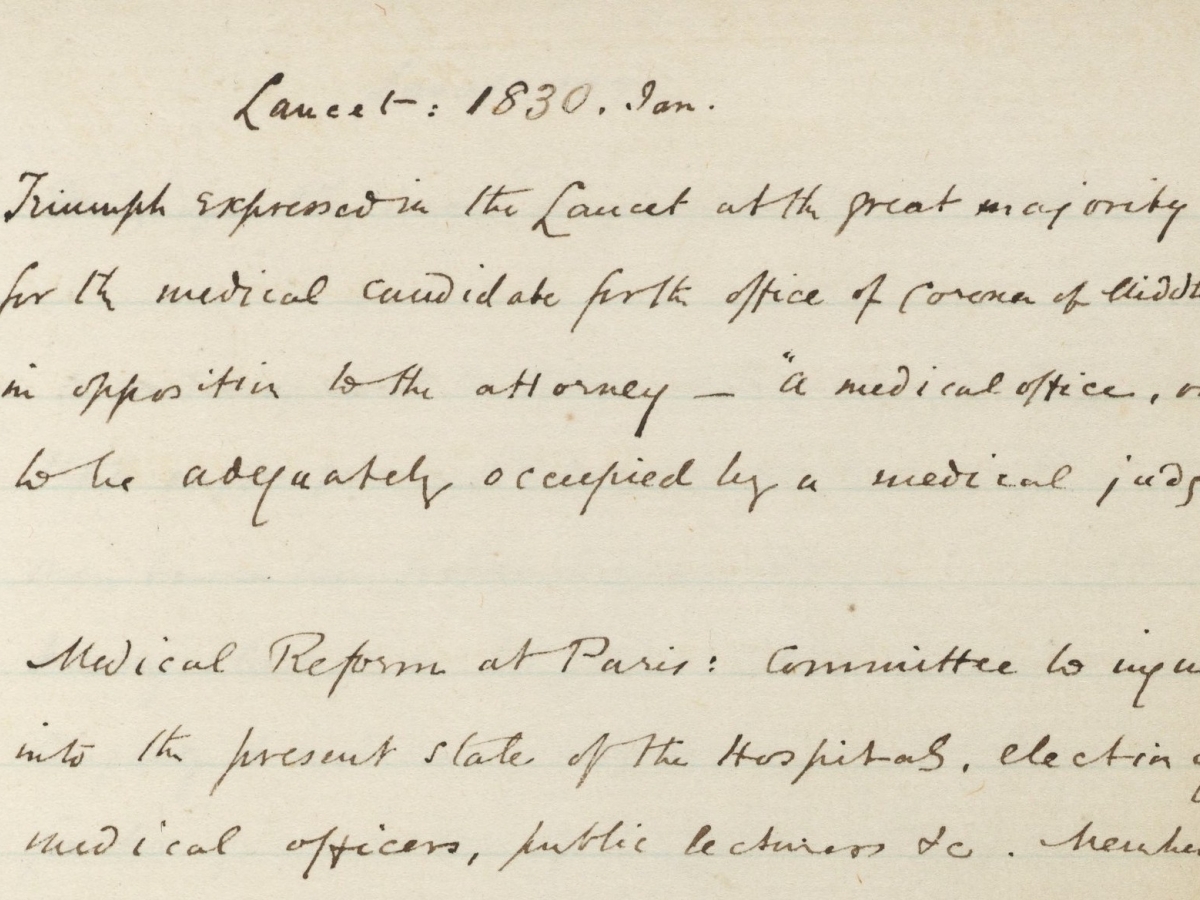 Lancet: 1830. Jan.
Triumph expressed in the Lancet at the great majority
for the medical candidate for the office of Coroner of
in opposition to the attorney — "a medical office,
to be adequately occupied by a medical
Medical Reform at Paris: Committee to
into the present state of the Hospitals, election
medical officers, public lecturers &c.